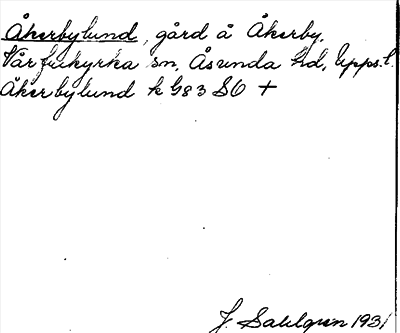 Åkerbylund, gård å Åkerby,
Vårfrukyrka sn, Åsunda hd, Upps. l.
Åkerbylund k G83 SO +
J. Sahlgren 1931